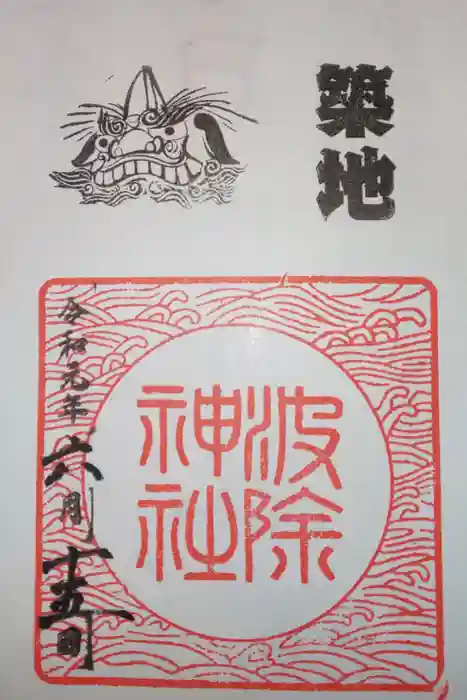 築地
波除
神社
令和元年
六月
十五日